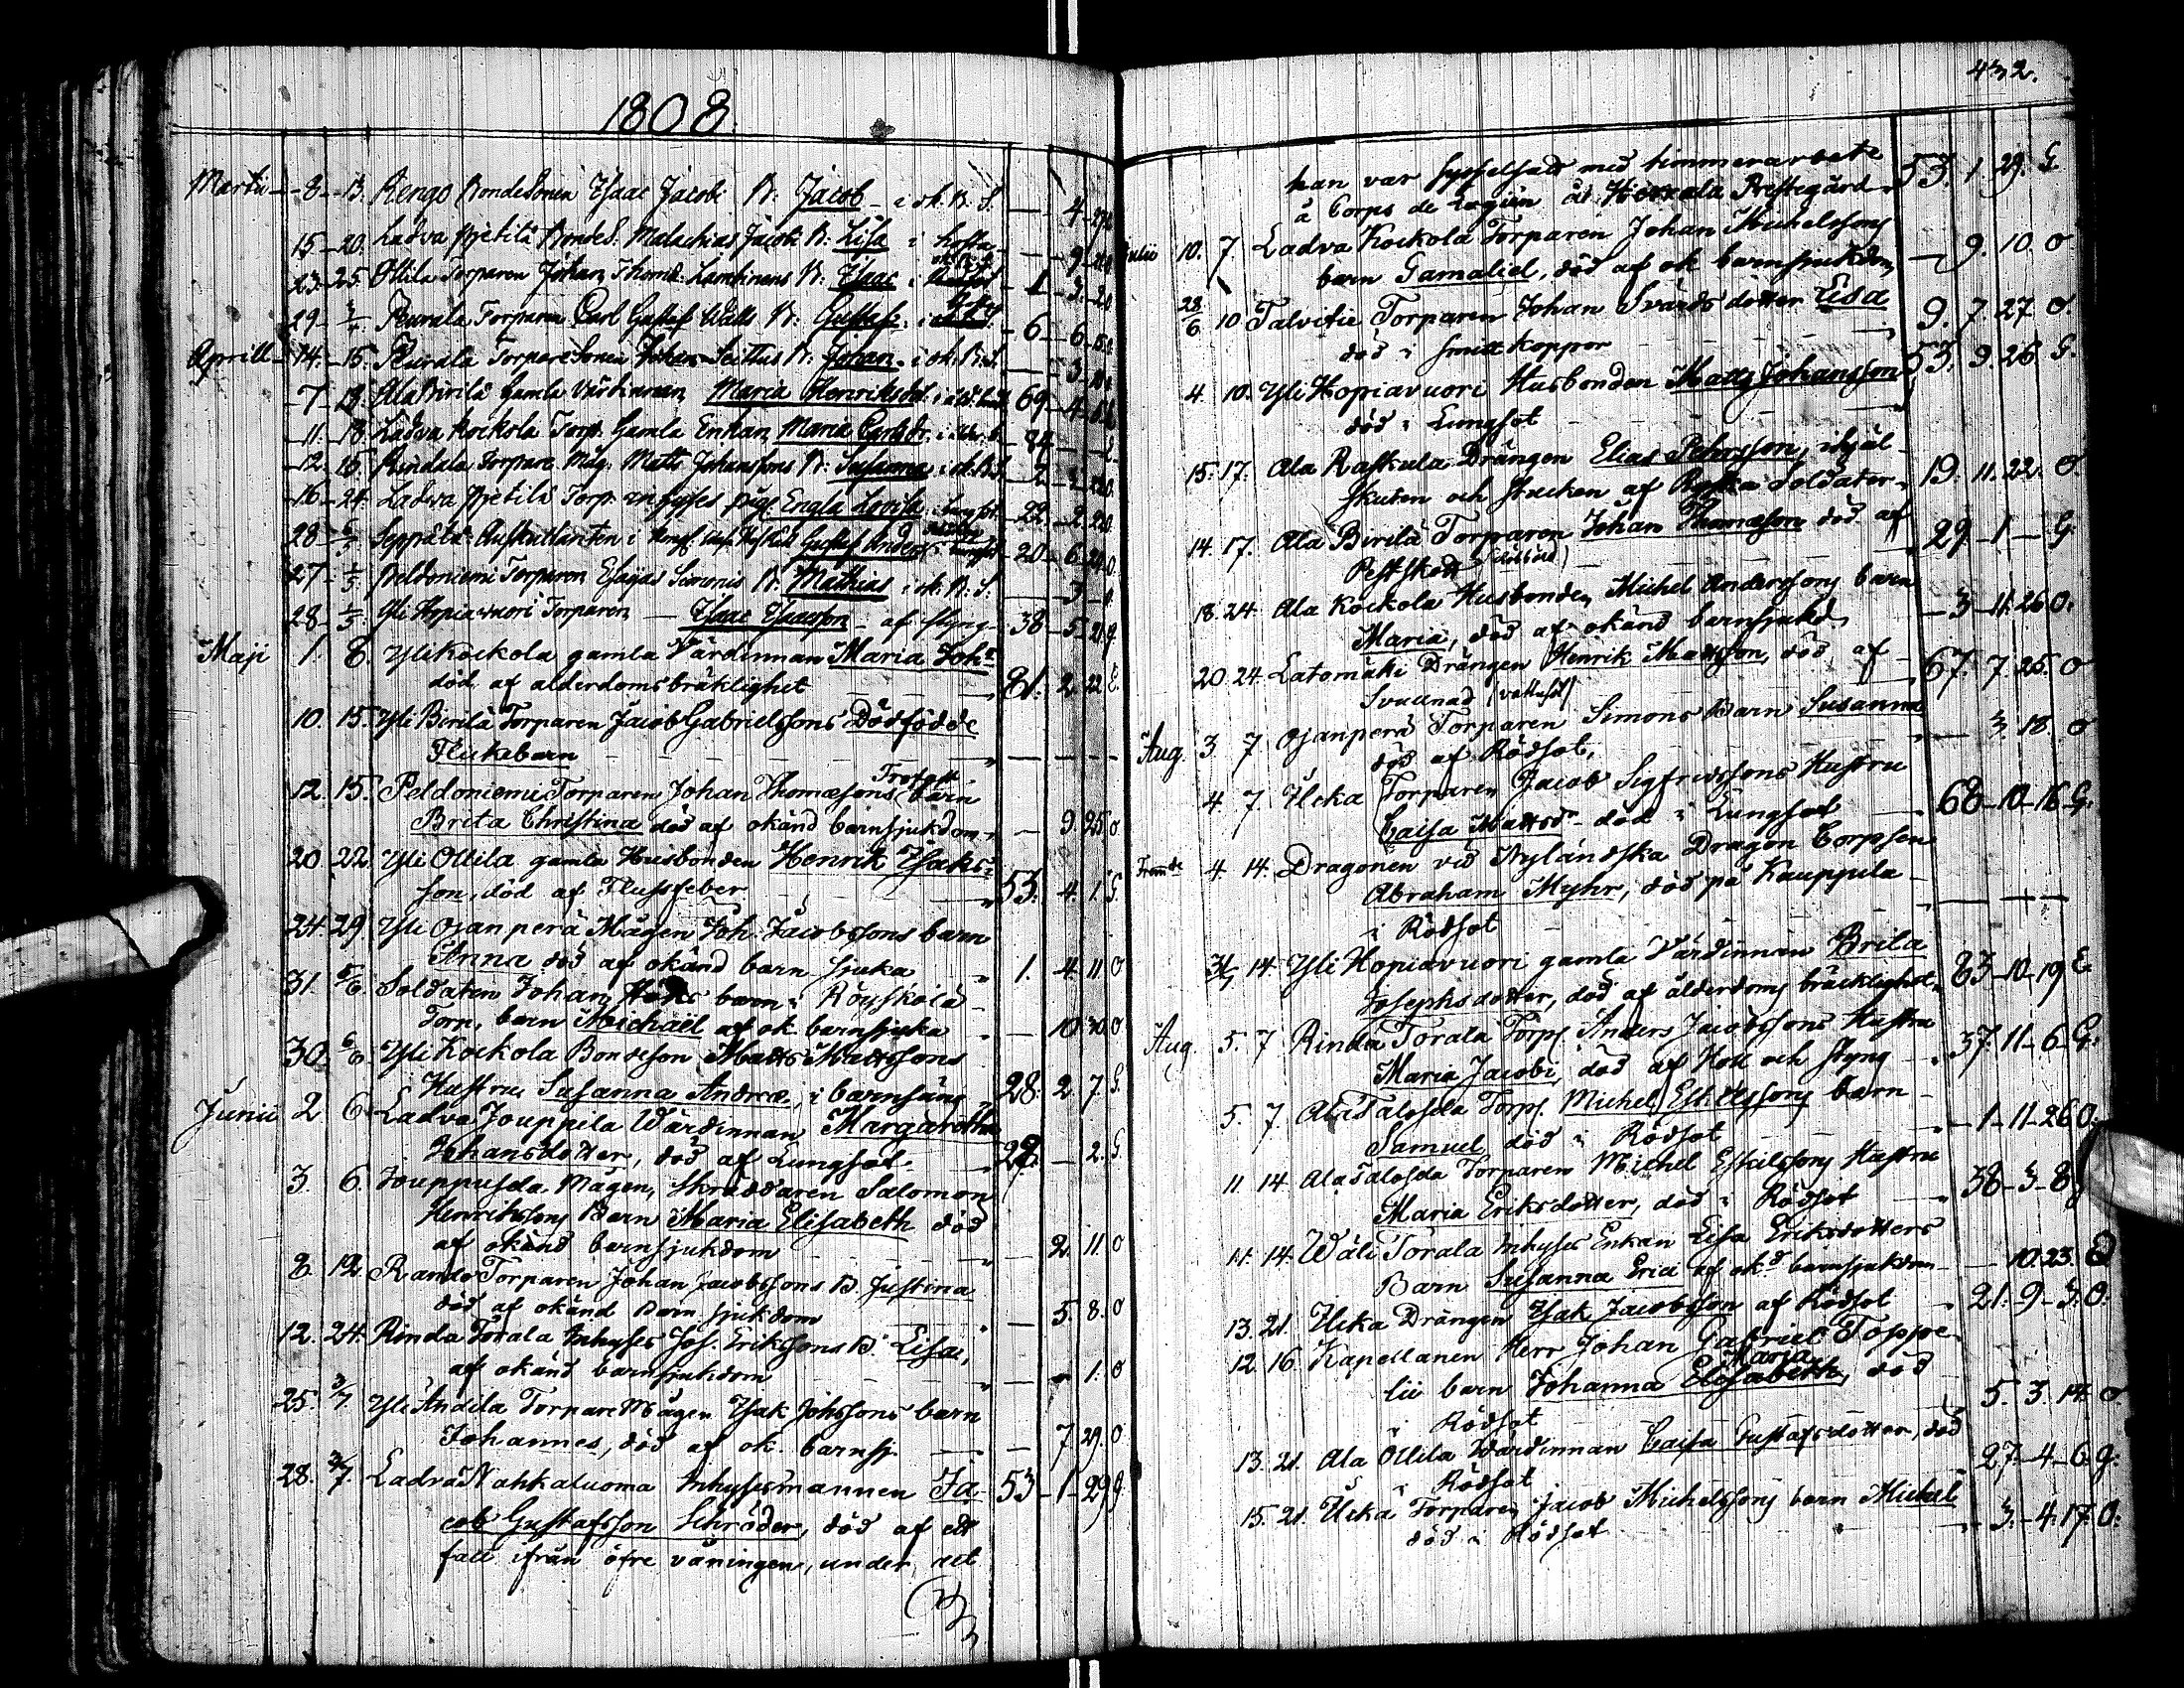 1808.
Martii - 8 - 13. Rengo Bondesonen Isaac Jacobi B: Jacob - i ok. B. S. — 4 - 27
15 - 20. Ladva Pjetilä Bondes. Malachias Jacobi B: Lisa i hosta - — 9
23 - 25. Ollila Torparen Johan Thomæ B: Isaac i - 1 - 3 - 2
29 - 3/4 Peurala Torparen Carl Gustaf Walls B: Gustaf. i - 6 - 6
Aprill - 14. - 15. Peurala TorpareSonen Johan B: Johan - i ok. B. S. — 3
7 - 13. Ala Birilä Gamla Värdinnan Maria Henriksdotr 69 - 4
11. - 18. Ladva Kockola Torp. Gamla Enkan Maria 84
12. 15. Rindala Torpare Måg. Matts Johanssons B: Susanna i ok. B. S. - 2
16 - 24. Ladva Pjetilä Torp. inhyses pig. Engla Lovisa i lungsot - 22 - 2
28 - Seppälä Gustaf Anders - 20 - 6
27 - 1/5. Peldoniemi Torparen Esaias Simonis B. Mathias i ok. B: S. — 3
28 - 1/5. Yli Hopiavuori Torparen — Isaac Isacsson - af styng - 38 - 5 21 g
Maji 1. 8. Yli Kockola gamla Värdinnan Maria Joh:
död af ålderdomsbräklighet 81. 2. 22. E.
10. 15. Yli Birilä Torparen Jacob Gabrielssons Dödfödde
Flickebarn
Trofast
12. 15. Peldoniemi Torparen Johan Thomæsons barn
Brita Christina död af okänd barnsjukdom - 9. 25. o
20. 22. Yli Ollila gamla Husbonden Henrik Isaks-
son, död af Flussfeber 53. 4. 1. G.
24. 29. Yli Ojanperä Mågen Joh. Jacobssons barn
Anna död af okänd barn sjuka 1. 4. 11 0
31. 5/6. Soldaten Johan barn i Röyskölä
Torp, barn Michaël af ok. barnsjuka — 10. 30. 0
30. 6/6. Yli Kockola Bondeson Matts Mattssons
Hustru Susanna Andreæ, i barnsäng 28. 2. 7. G
Junii 2 6. Ladva Jouppila Wärdinnan Margaretha
Johansdotter, död af Lungsot 28. — 2. G
3. 6. Jouppilda Mågen, Skräddaren Salomon
Henrikssons Barn Maria Elisabeth död
af okänd barnsjukdom — 2. 11. 0
8. 12. Rando Torparen Johan Jacobssons B. Justina
död af okänd Barn sjukdom — 5. 8. 0
12. 24. Rinda Torala Inhyses Jos. Erikssons B. Lisa,
af okänd barnsjukdom — 1. 0
25. 3/7 Yli Andila Torpare Mågen Isak Johssons barn
Johannes, död af ok. barnsj. — 7 29. 0
28. 3/7. Ladva Nahkaluoma Inhysesmannen Ja-
cob Gustafsson Schröder, död af ett 53 - 1 - 29 g
fall ifrån öfre våningen, under det
432.
han var sysselsatt med timmerarbete 53. 1 29. G.
å Corps de Logiin å Prestegård
Julii 10. 7. Ladva Kockola Torparen Johan Michelssons
barn Gamaliel, död af ok barnsjukdom — 9. 10. 0
28/6 10 Talvitie Torparen Johan Svärds dotter Lisa
död i smittkoppor 9. 7. 27. 0.
4. 10. Yli Hopiavuori Husbonden Matts Johansson 53. 9. 26 G.
död i Lungsot
15. 17. Ala Raskula Drängen Elias Pehrsson, ihjäl-
skuten och stucken af Ryska Soldater. 19. 11. 22. 0
14. 17. Ala Birilä Torparen Johan Thomasson död af
29 - 1 — G.
18. 24. Ala Kockola Husbonden Michel Anderssons barn
Maria, död af okänd barnsjukd. — 3 - 11. 26 0.
20. 24. Latomäki Drängen Henrik Mattsson, död af
Svullnad (vattusot) 67. 7. 25. 0
Aug. 3 7 Ojanperä Torparen Simons Barn Susanna
död af Rödsot. — 3. 18. 0
4 7. Ilcka Torparen Jacob Sigfridssons Hustru
Caisa Mattsdr död i Lungsot 68 - 10 - 16 - G.
4. 14. Dragonen vid Nyländska Dragon Corpsen
Abraham Myhr, död på Kauppila
i Rödsot
31/7 14. Yli Hopiavuori gamla Värdinnan Brita
Josephsdotter, död af ålderdoms bräcklighet 83 - 10 - 19 E
Aug. 5. 7 Rinda Torala Torp. Anders Jacobssons Hustru
Maria Jacobi, död af Håll och styng 37. 11 - 6 - G.
5. 7. Ala Talosda Torp. Michel Eskilssons barn
Samuel död i Rödsot — 1 - 11 - 26 0.
11 14. Ala Talosda Torparen Michel Eskilssons Hustru
Maria Eriksdotter, död i Rödsot 38 - 3 - 8
11. 14. Wäli Torala Inhyses Enkan Lisa Eriksdotters
Barn Susanna Erici af okd barnsjukdom — 10. 23. 0
13. 21. Ilcka Drängen Isak Jacobsson af Rödsot 21. 9 - 3. 0.
12 16. Kapellanen Herr Johan Gabriel Toppe-
Maria
lii barn Johanna Elisabeth, död
i Rödsot 5. 3. 14. 0.
13. 21. Ala Ollila Wärdinnan Caisa Gustafsdotter, död
i Rödsot 27 - 4 - 6. g.
15. 21. Ilcka Torparen Jacob Michelssons barn Michel
död i Rödsot 3. - 4. 17. 0.